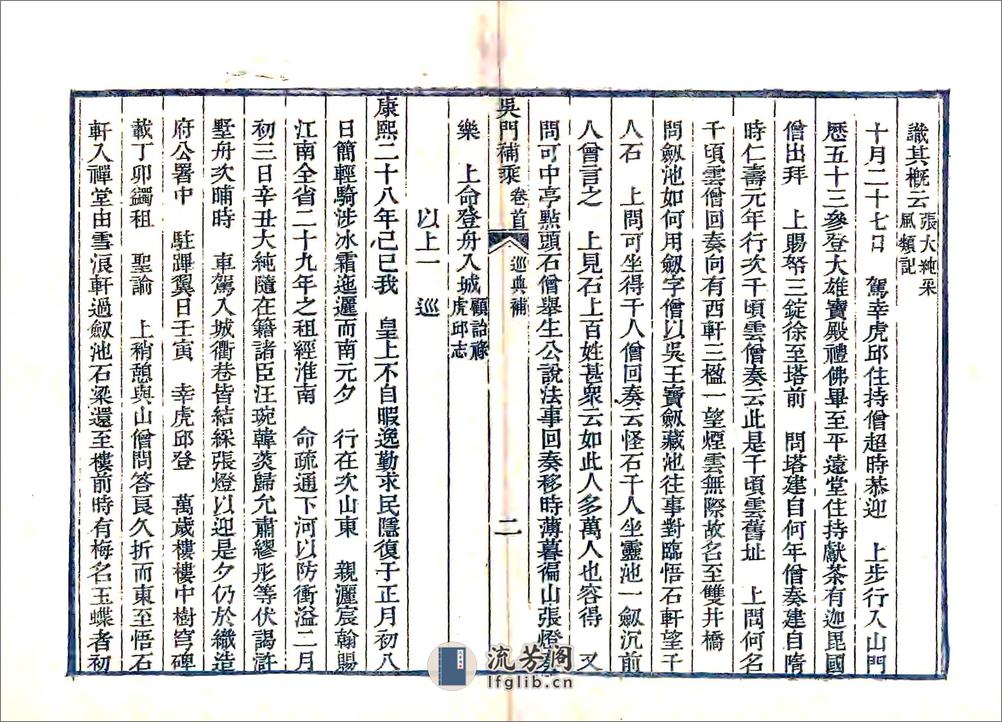 識其概云張大純采風類記
十月二十七日　駕幸虎邱住持僧超時恭迎　上步行入山門
歷五十三參登大雄寶殿禮佛畢至平遠堂住持獻茶有迦毘國
僧出拜　上賜帑三錠徐至塔前　問塔建自何年僧奏建自隋
時仁壽元年行次千頃雲僧奏云此是千頃雲舊址　上問何名
千頃雲僧回奏向有西軒三楹一望煙雲無際故名至雙井橋
問劔池如何用劔字僧以吳王寶劔藏池往事對臨悟石軒望千
人石　上問可坐得千人僧回奏云怪石千人坐靈池一劔沉前
人曾言之　上見石上百姓甚衆云如此人多萬人也容得　又
問可中亭點頭石僧舉生公說法事回奏移時薄暮徧山張燈奏
吳門補乘　卷首　巡典補　二
樂　上命登舟入城顧詒祿虎邱志
以上一　巡
康熙二十八年己巳我　皇上不自暇逸勤求民隱復于正月初八
日簡輕騎涉冰霜迤邐而南元夕　行在次山東　親灑宸翰賜
江南全省二十九年之租經淮南　命疏通下河以防衝溢二月
初三日辛丑大純隨在籍諸臣汪琬韓菼歸允肅繆彤等伏謁許
墅舟次晡時　車駕入城衢巷皆結綵張燈以迎是夕仍於織造
府公署中　駐蹕翼日壬寅　幸虎邱登　萬歲樓樓中樹穹碑
載丁卯蠲租　聖諭　上稍憩與山僧問答良久折而東至悟石
軒入禪堂由雪浪軒過劔池石梁還至樓前時有梅名玉蝶者初
流芳阁
lfglib.cn